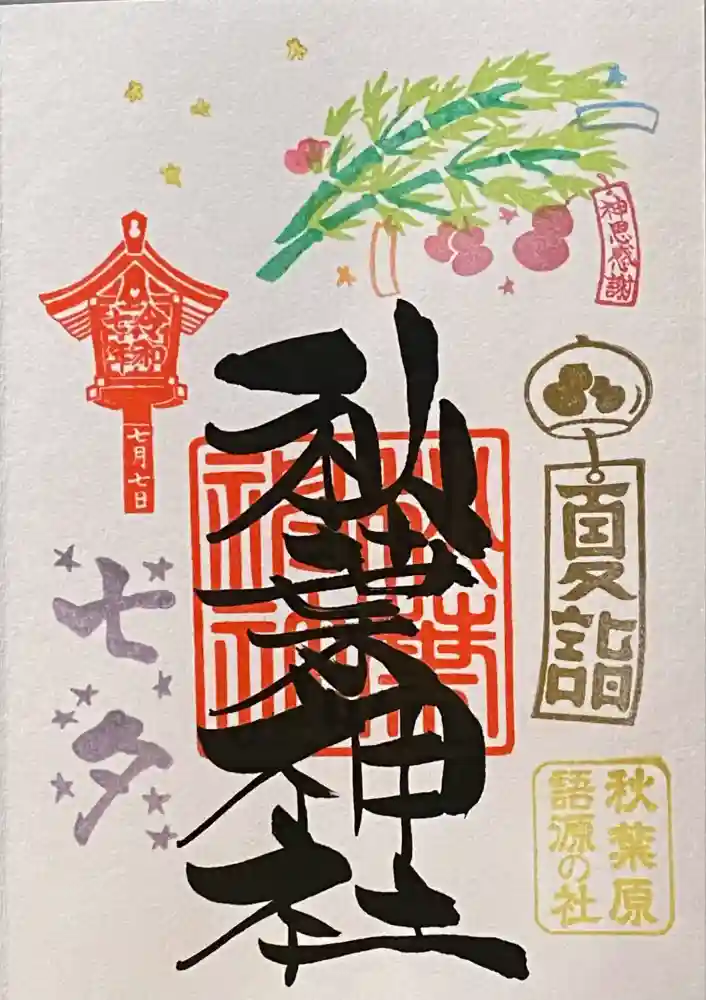 神恩感謝
令和
七年
七月七日
夏詣
秋葉神社
秋葉
神社
七夕
秋葉原
語源の社